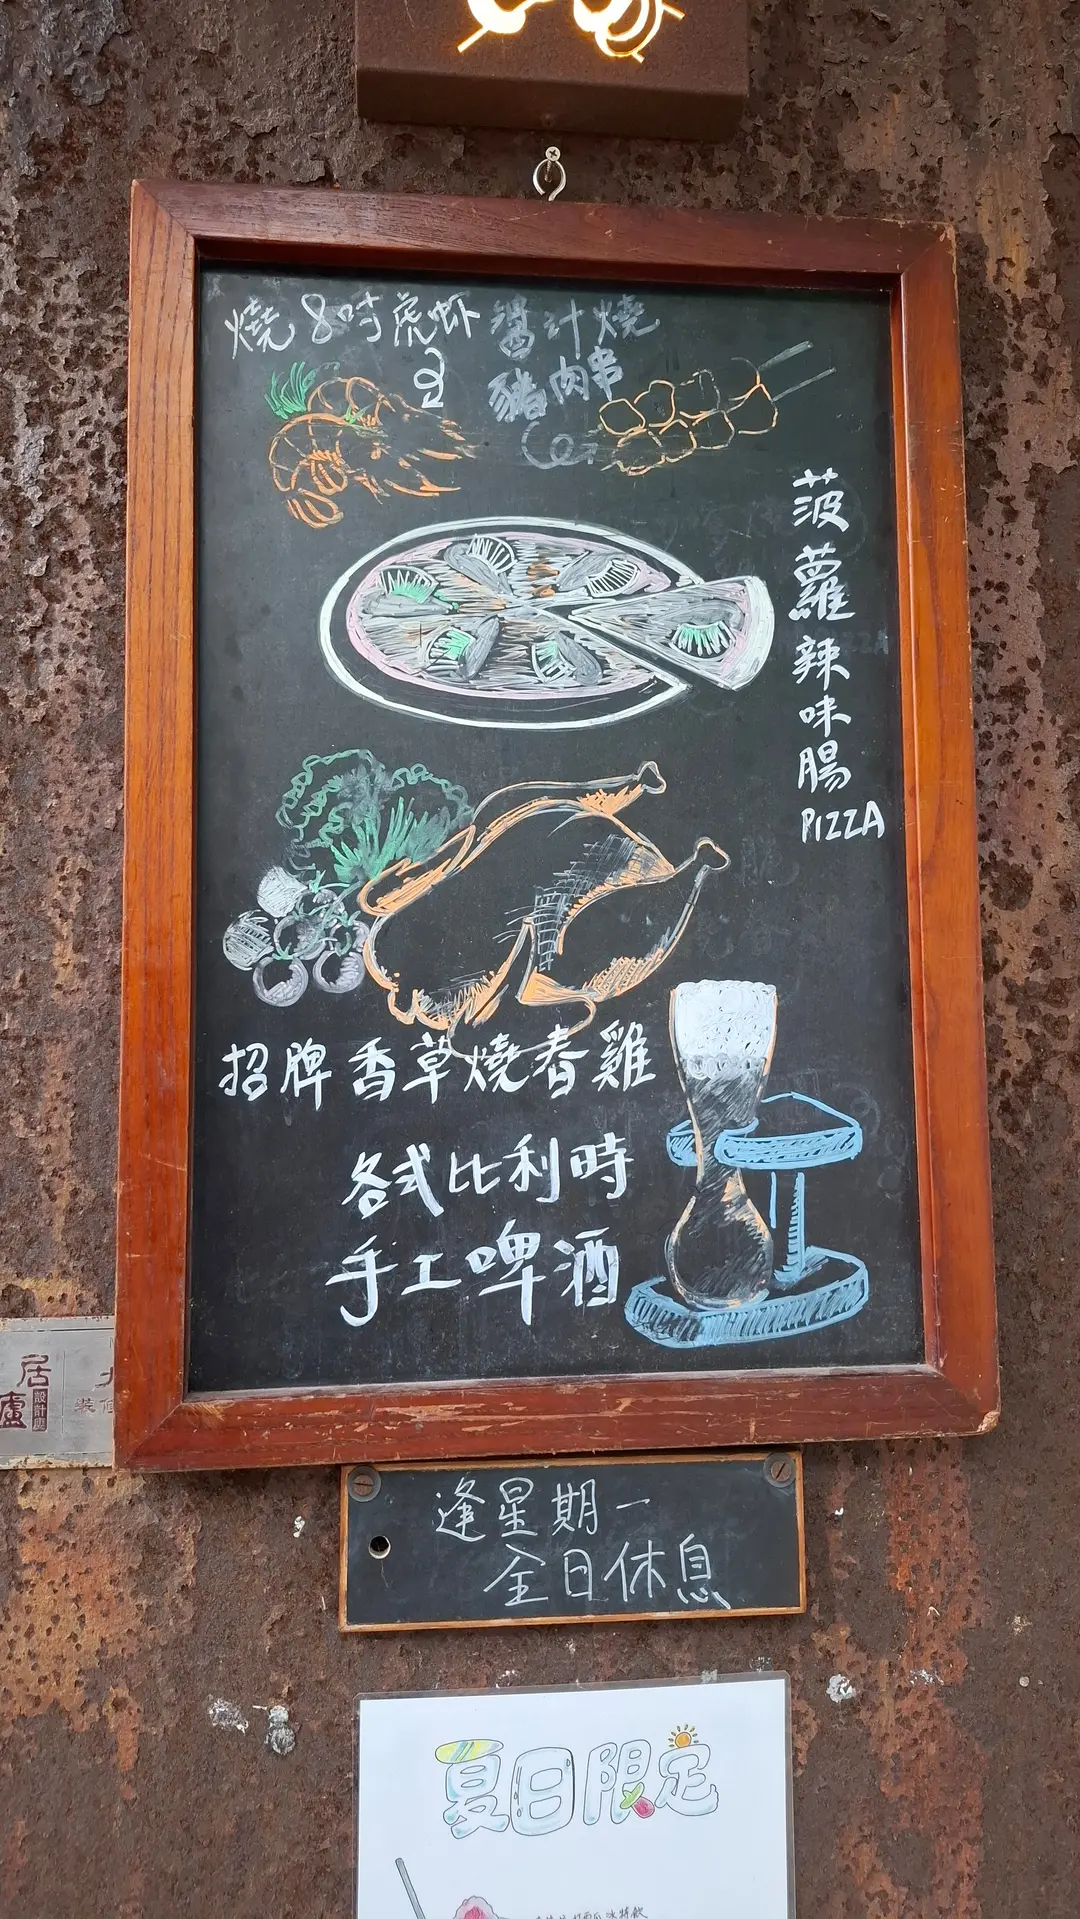 燒8吋虎虾
醬汁燒
豬肉串
菠蘿辣味腸PIZZA
招牌香草燒春雞
各式比利時
手工啤酒
居
廬
設計
逢星期一
全日休息
夏日限定